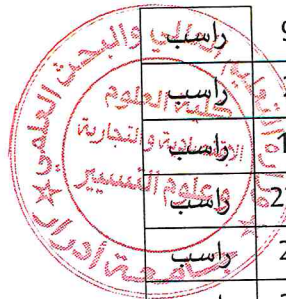 راسب 9
راسب
راسب 1
راسب 2
راسب 2
التعليم العالي والبحث العلمي
كلية العلوم
الاقتصادية والتجارية
وعلوم التسيير
جامعة أدرار